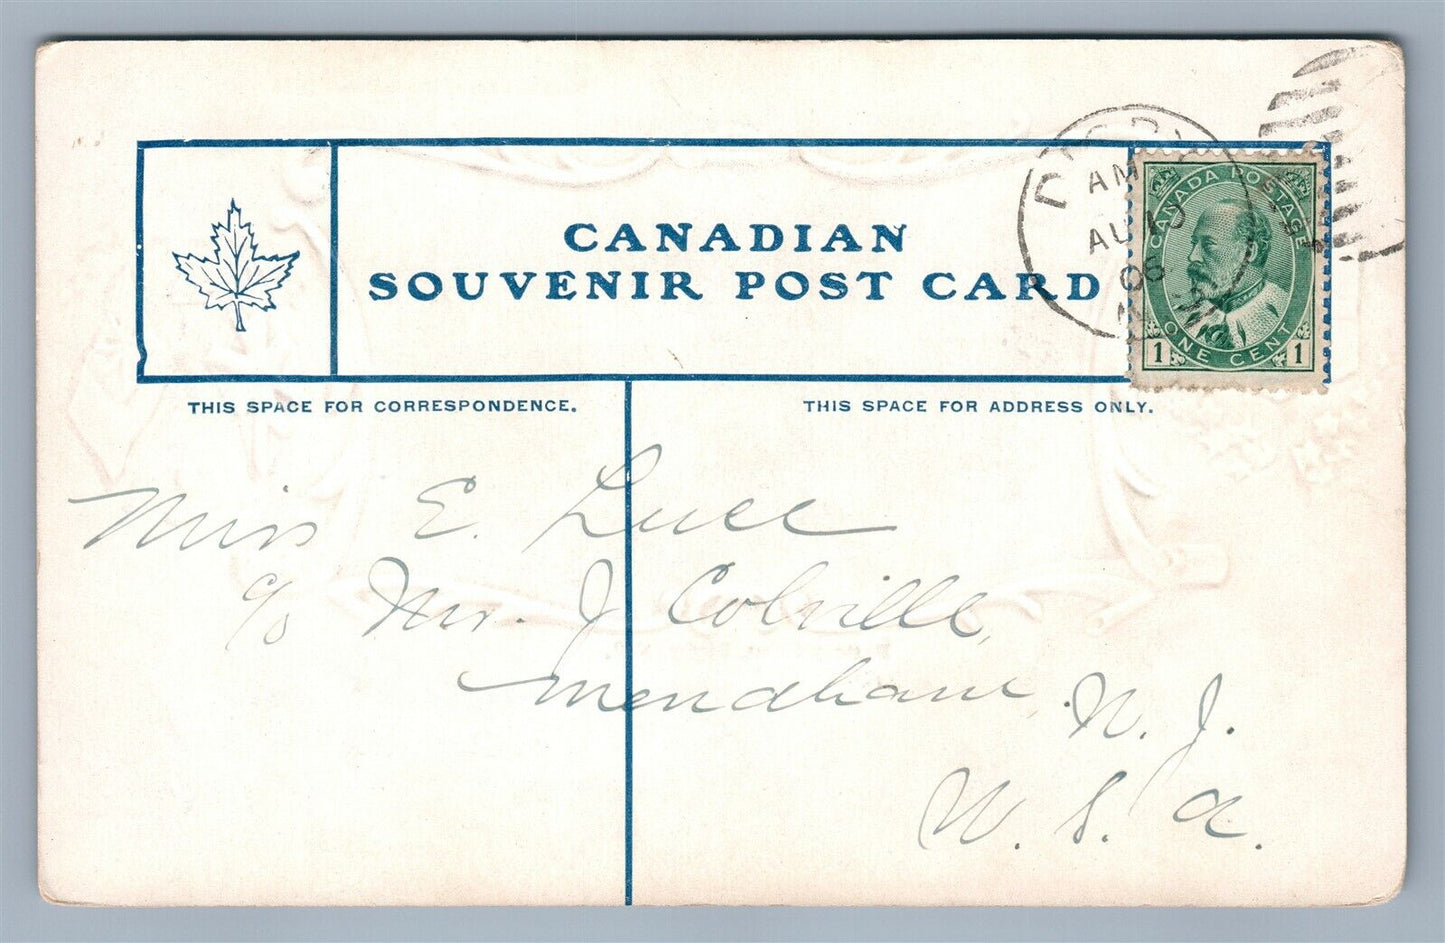 CANADIAN
SOUVENIR POST CARD
AM
AU 10
06
CANADA POSTAGE
1 ONE CENT 1
THIS SPACE FOR CORRESPONDENCE.
THIS SPACE FOR ADDRESS ONLY.
Miss E. Luce
c/o Mr. J Colville,
Mendham, N. J.
U. S. A.